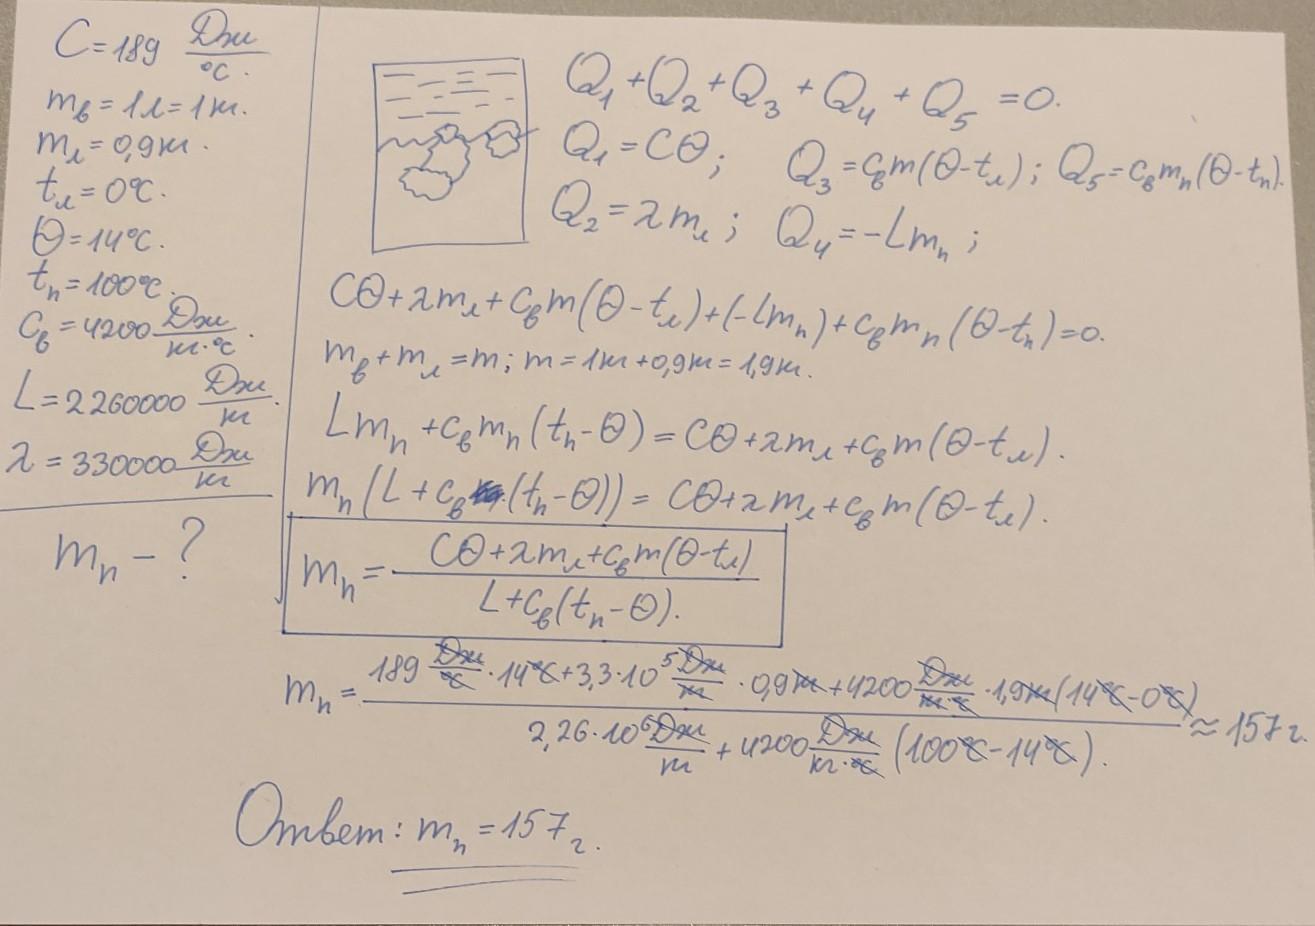 C=189 Дж/°C.
mв=1л=1кг.
mл=0,9кг.
tл=0°C.
Θ=14°C.
tп=100°C.
Cв=4200 Дж/кг·°C.
L=2260000 Дж/кг.
λ=330000 Дж/кг
mп-?
Q₁+Q₂+Q₃+Q₄+Q₅=0.
Q₁=CΘ; Q₃=cвm(Θ-tл); Q₅=cвmп(Θ-tп).
Q₂=λmл; Q₄=-Lmп;
CΘ+λmл+cвm(Θ-tл)+(-Lmп)+cвmп(Θ-tп)=0.
mв+mл=m; m=1кг+0,9кг=1,9кг.
Lmп+cвmп(tп-Θ)=CΘ+λmл+cвm(Θ-tл).
mп(L+cв(tп-Θ))=CΘ+λmл+cвm(Θ-tл).
mп= CΘ+λmл+cвm(Θ-tл) / L+cв(tп-Θ).
mп= 189 Дж/°C·14°C+3,3·10⁵ Дж/кг·0,9кг+4200 Дж/кг·°C·1,9кг(14°C-0°C) / 2,26·10⁶ Дж/кг+4200 Дж/кг·°C(100°C-14°C). ≈157г.
Ответ: mп=157г.